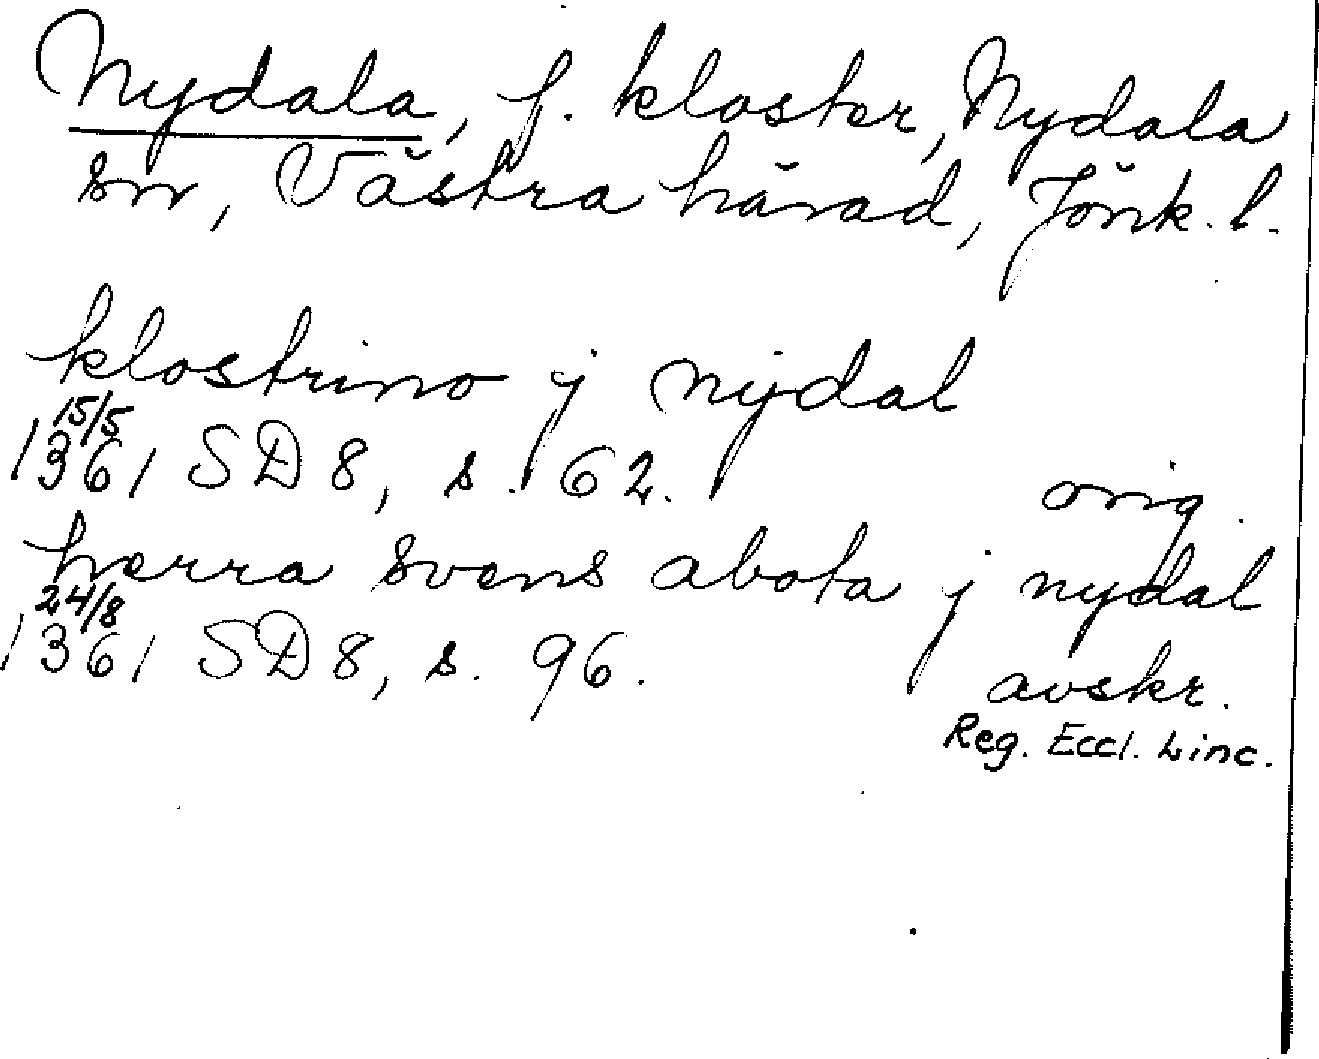 Nydala, f. kloster, Nydala
sn, Västra härad, Jönk. l.
klostrino j nydal
15/5
1361 SD 8, s. 62. orig.
herra svens abota j nydal
24/8
1361 SD 8, s. 96. avskr.
Reg. Eccl. Linc.